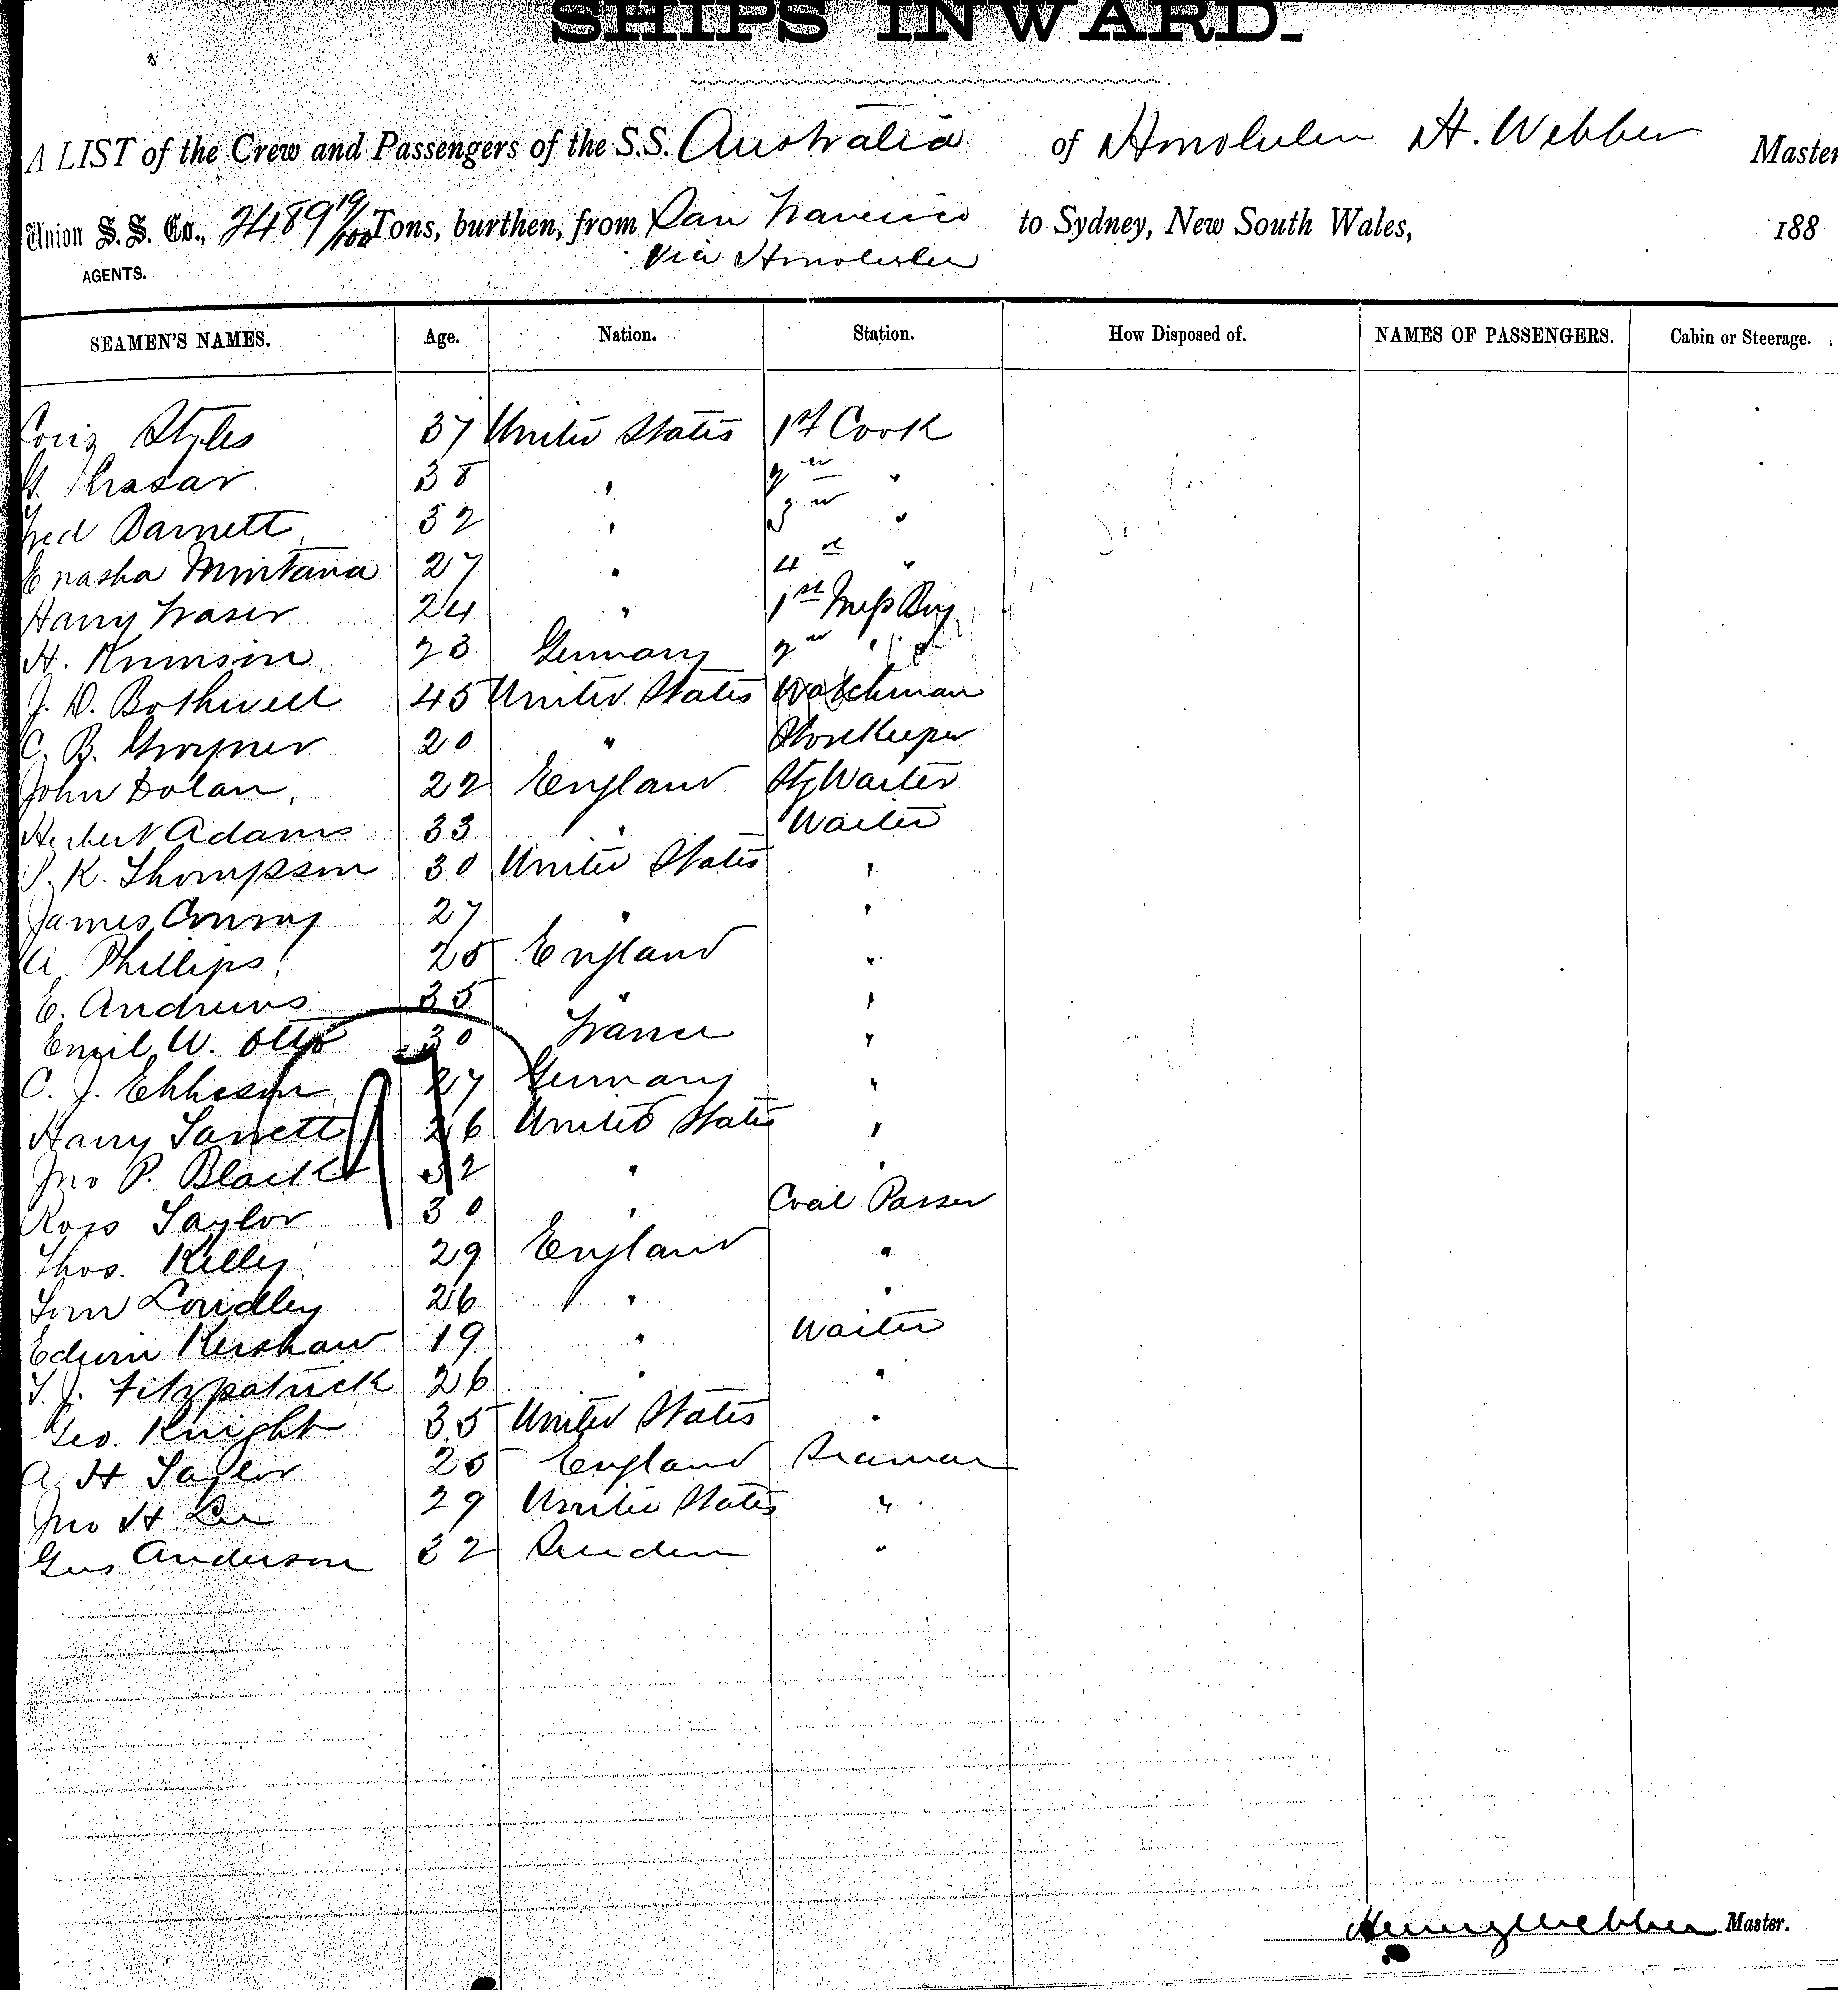 SHIPS INWARD.
A LIST of the Crew and Passengers of the S.S. Australia of Honolulu H. Webber Master
Union S. S. Co., 2489 19/100 Tons, burthen, from San Francisco to Sydney, New South Wales, 188
via Honolulu
AGENTS.
SEAMEN'S NAMES. Age. Nation. Station. How Disposed of. NAMES OF PASSENGERS. Cabin or Steerage.
Styles 37 United States 1st Cook
38 " 2nd "
Fred Barnett 52 " 3rd "
Montana 27 " 4th "
Harry Fraser 24 " 1st Mess Boy
H. 23 Germany 2nd "
J. D. Bothwell 45 United States Watchman
C. B. 20 " Storekeeper
John Dolan 22 England Stg Waiter
Herbert Adams 33 " Waiter
K. Thompson 30 United States "
James Conroy 27 " "
A. Phillips 25 England "
E. Andrews 35 " "
Emil W. Otto 30 France "
C. J. 27 Germany "
Harry 26 United States "
Jno P. Black 32 " "
Ross Taylor 30 " Coal Passer
Thos. Kelley 29 England "
26 " "
Edwin Kershaw 19 " Waiter
T. J. Fitzpatrick 26 " "
Geo. Knight 35 United States "
A. H Taylor 25 England Seaman
Jno H Lee 29 United States "
Gus Anderson 32 Sweden "
Henry Webber Master.